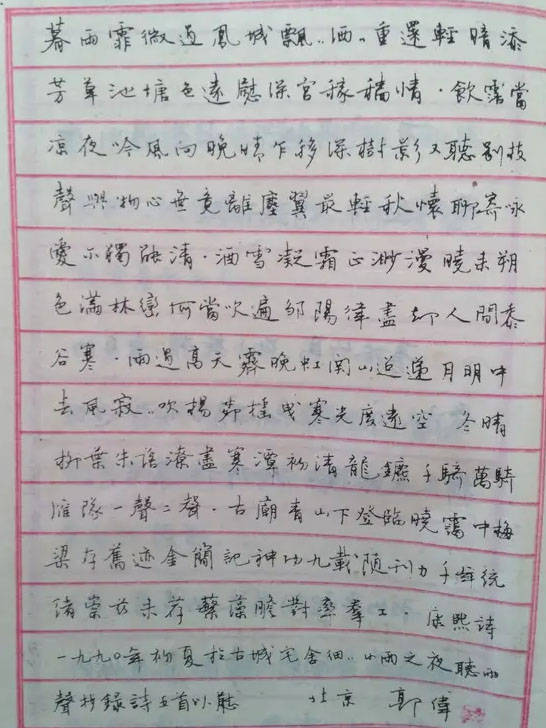 暮雨霏微過鳳城飄..洒..重還輕暗添
芳草池塘色遠慰深宮稼穡情.飲露當
凉夜吟風向晚晴乍移深樹影又聽别枝
聲與物心無竟離塵翼最輕秋懷聊寄咏
愛尔獨能清.洒雪凝霜正渺漫曉来朔
色滿林巒何當吹遍邹陽律盡却人間黍
谷寒.雨過高天霽晚虹関山迢遞月明中
去風寂..吹楊茆摇曳寒光度遠空 冬晴
柳葉朱詒潦盡寒潭初清龍鑣千騎萬騎
雁隊一聲二聲.古廟青山下登臨曉靄中梅
梁存舊迹金簡記神功九載随刊力千年統
緒崇兹来荐蘋藻瞻對率羣工.康熙詩
一九九〇年初夏於古城宅舍细..小雨之夜聽雨
聲抄録詩五首以 北京 郭偉